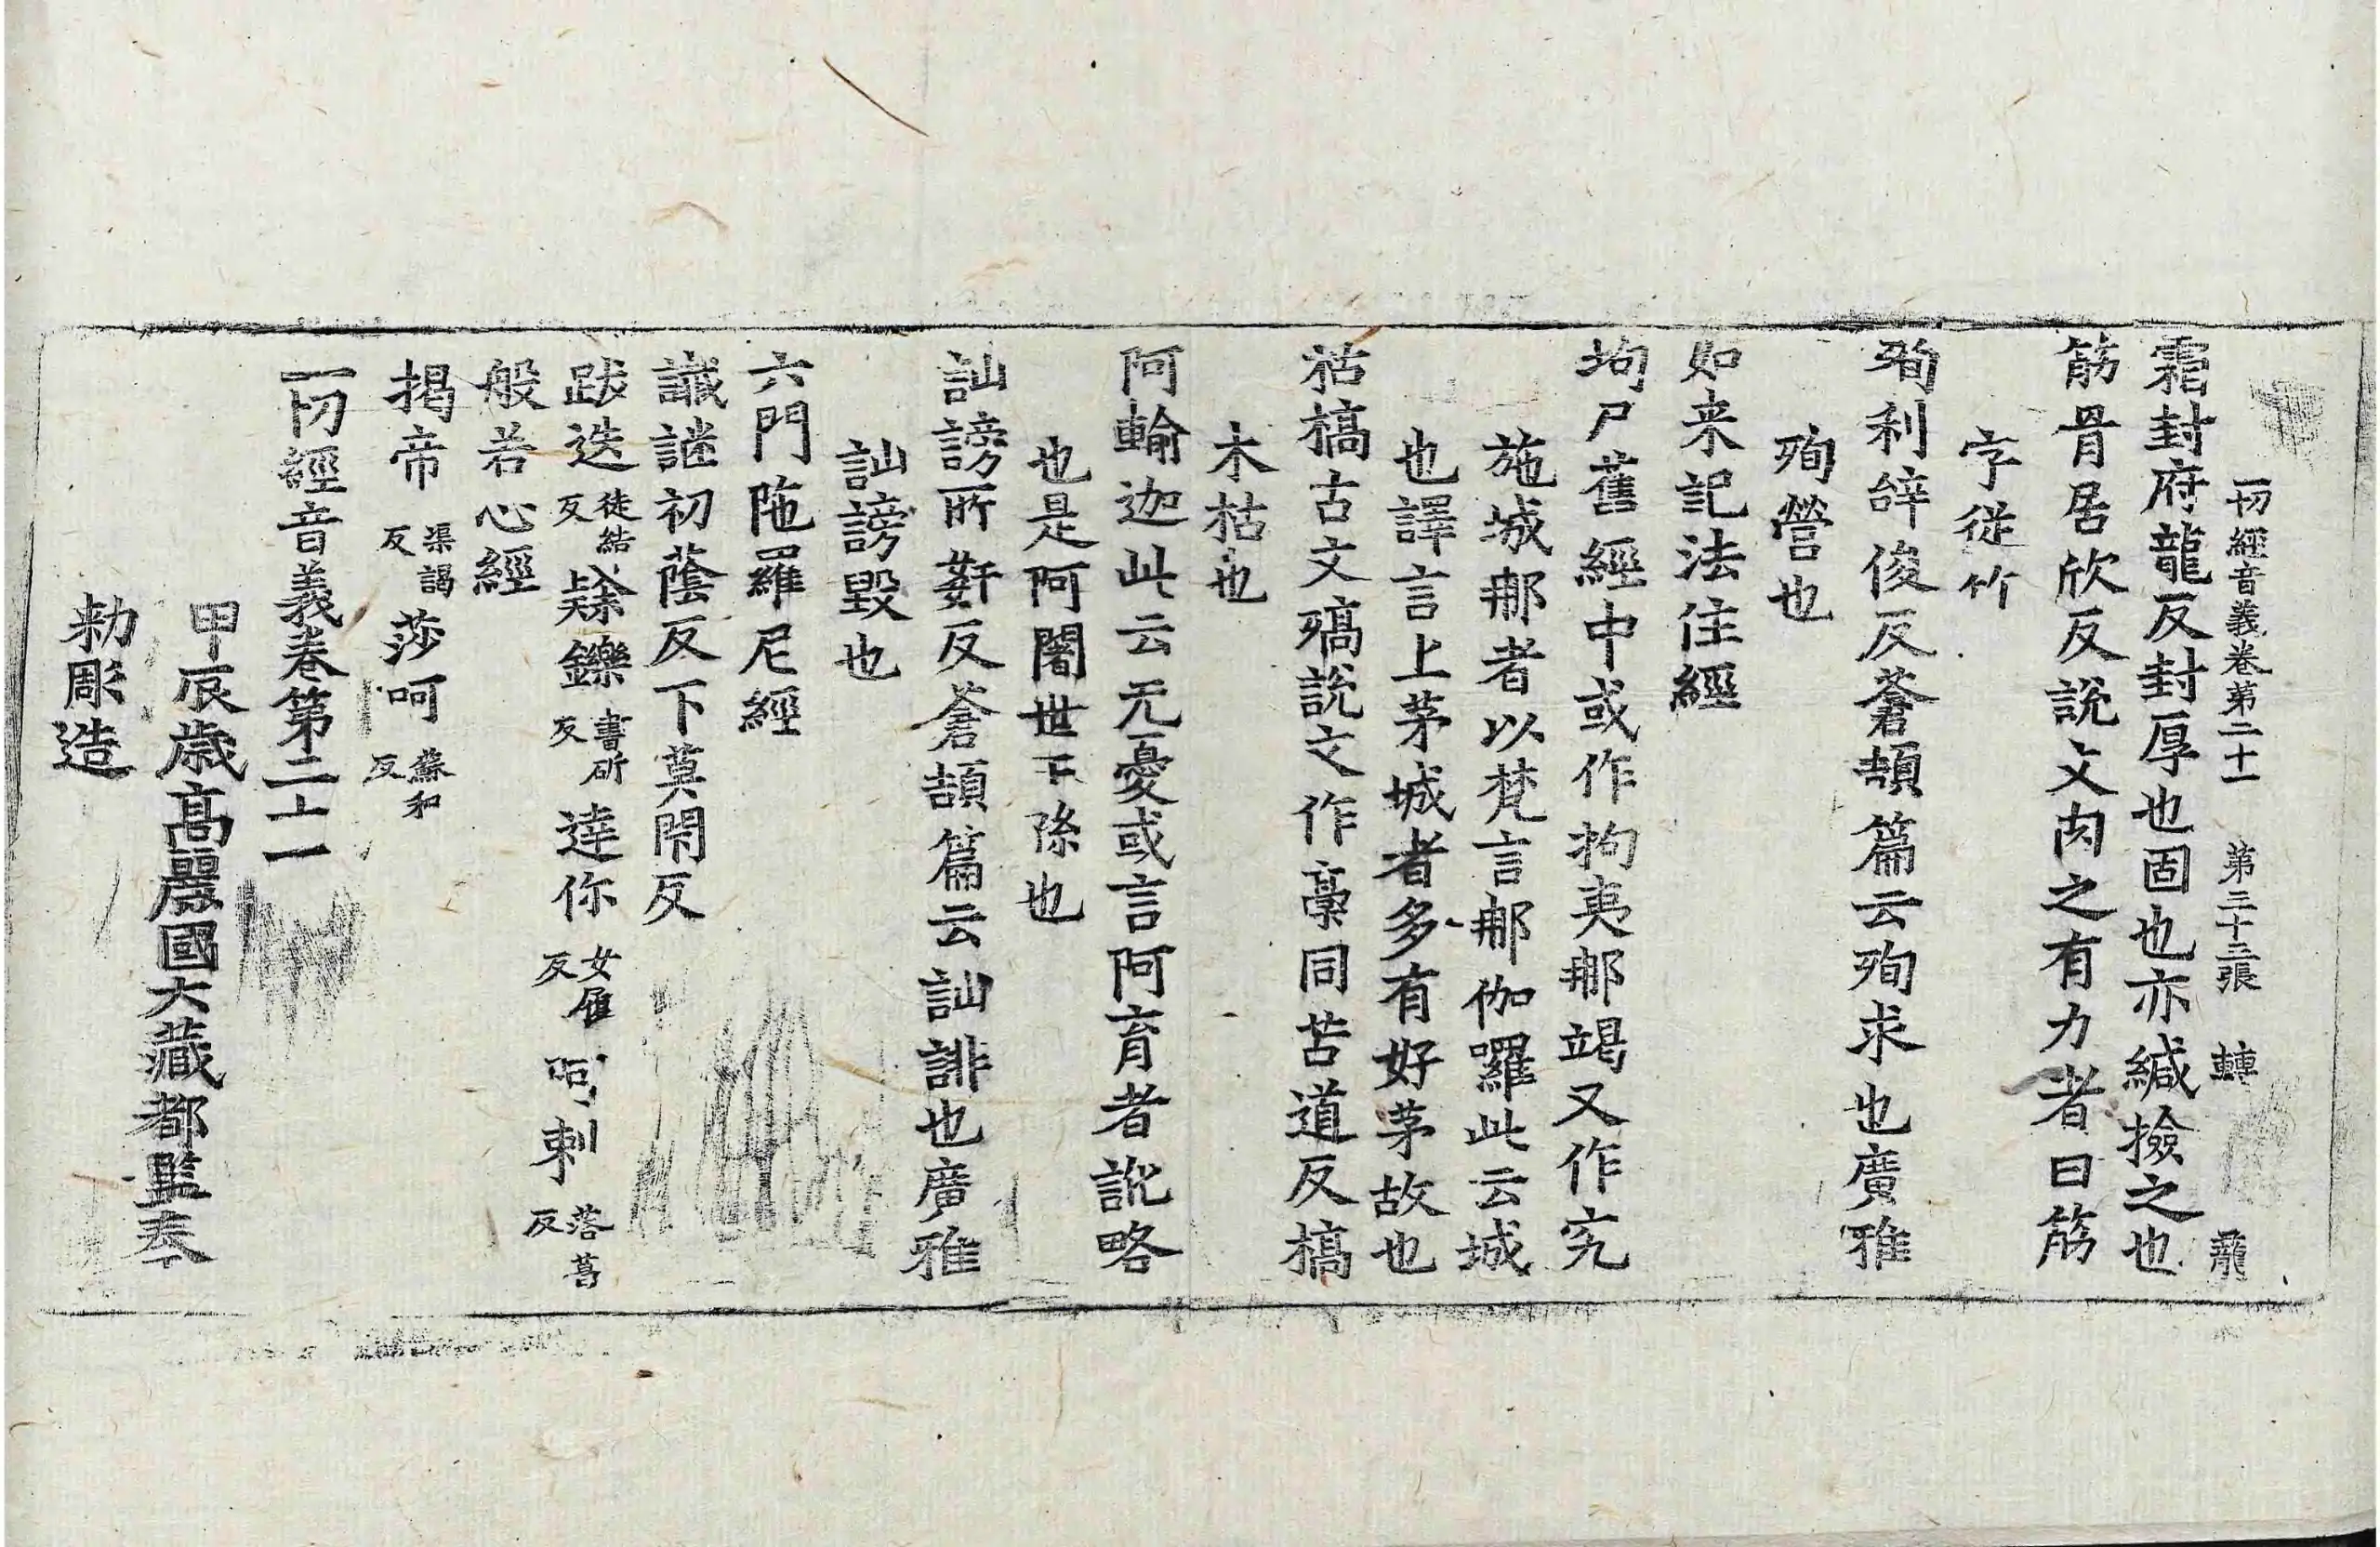 一切經音義卷第二十一 第三十三張 轉
霜封府龍反封厚也固也亦緘撿之也
筋骨居欣反說文肉之有力者曰筋
字從竹
殉利辝俊反蒼頡篇云殉求也廣雅
殉營也
如来記法住經
拘尸舊經中或作拘夷那竭又作究
施城那者以梵言那伽囉此云城
也譯言上茅城者多有好茅故也
枯槁古文殦說文作槀同苦道反槁
木枯也
阿輸迦此云无憂或言阿育者訛略
也是阿闍世孫也
訕謗所姧反蒼頡篇云訕誹也廣雅
訕謗毀也
六門陁羅尼經
讖謎初蔭反下莫閇反
跋迭徒結反鑠書斫反達你女履反呵剌落葛反
般若心經
揭帝渠謁反莎呵蘇和反
一切經音義卷第二十一
甲辰歲高麗國大藏都監奉
勅彫造